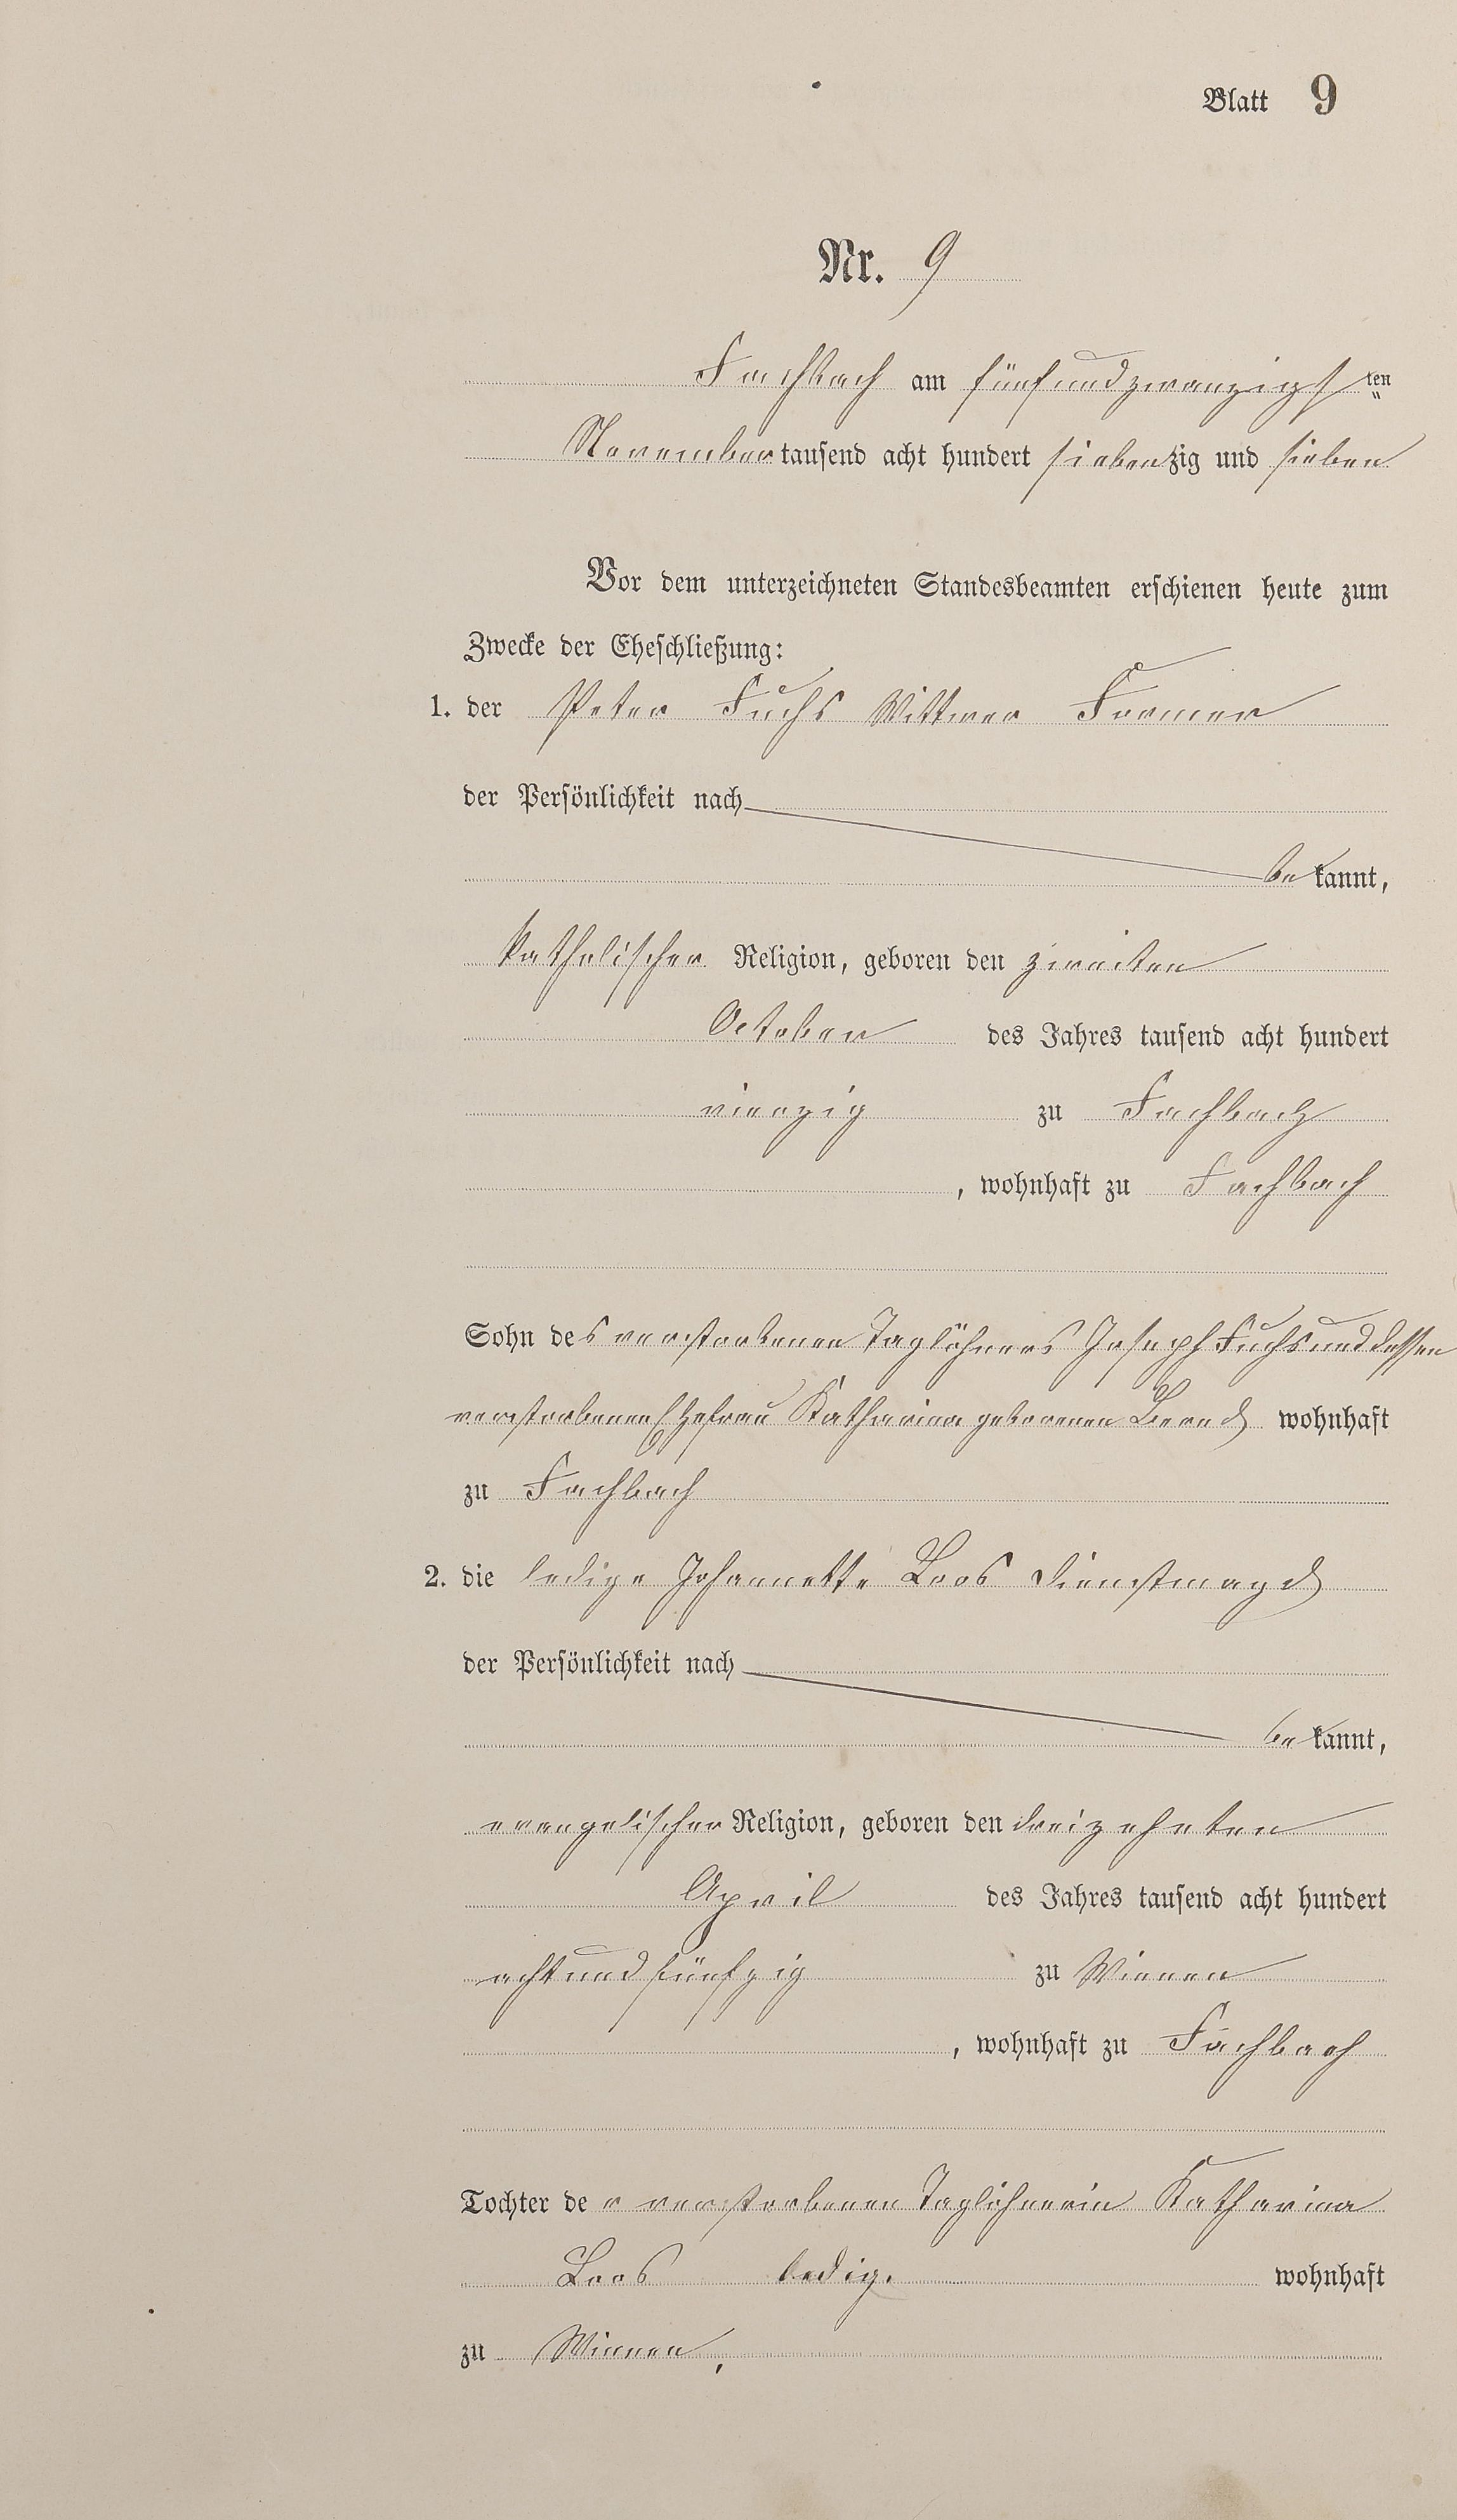 Blatt 9
Nr. 9
Fachbach am fünfundzwanzigsten
November tausend acht hundert siebenzig und sieben
Vor dem unterzeichneten Standesbeamten erschienen heute zum
Zwecke der Eheschließung:
1. der Peter Fuchs Wittwer Former
der Persönlichkeit nach
be kannt,
katholischer Religion, geboren den zweiten
October des Jahres tausend acht hundert
vierzig zu Fachbach
, wohnhaft zu Fachbach
Sohn des verstorbenen Taglöhners Joseph Fuchs und dessen
verstorbenen Ehefrau Katharina geborenen Bernd wohnhaft
zu Fachbach
2. die ledige Johannette Loos Dienstmagd
der Persönlichkeit nach
be kannt,
evangelischer Religion, geboren den dreizehnten
April des Jahres tausend acht hundert
achtundfünfzig zu Winnen
, wohnhaft zu Fachbach
Tochter der verstorbenen Taglöhnerin Katharina
Loos ledig. wohnhaft
zu Winnen,